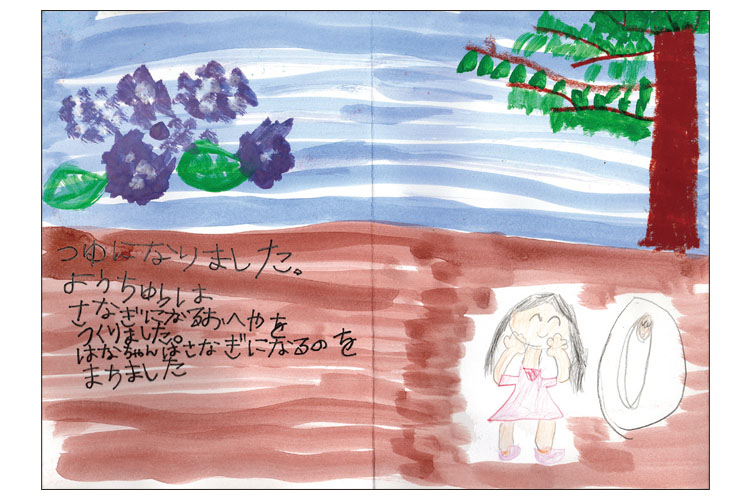 つゆになりました。
ようちゅうは
さなぎになるおへやを
つくりました。
はなちゃんはさなぎになるのを
まちました